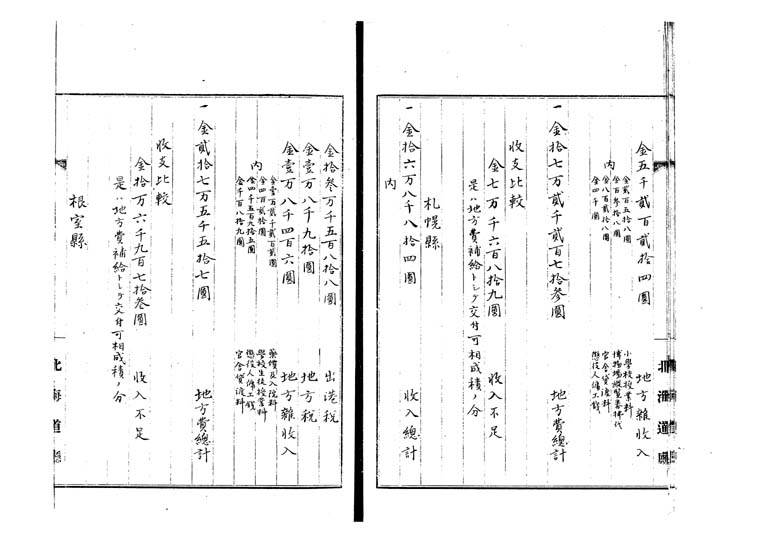 金五千貳百貳拾四圓 地方雜收入
内
金貳百五拾八圓 小學校授業料
金百參拾八圓 博物場縦覧券代
金八百貳拾八圓 官舎貸渡料
金四千圓 懲役人傭工錢
一金拾七万貳千貳百七拾參圓 地方費總計
收支比較
金七万千六百八拾九圓 收入不足
是ハ地方費補給トシテ交付可相成積ノ分
札幌縣
一金拾六万八千八拾四圓 收入總計
内
北海道廳
金拾參万千五百八拾八圓 出港税
金壹万八千九拾圓 地方税
金壹万八千四百六圓 地方雜收入
内
金壹万貳千貳百貳圓 藥價及入院料
金四百貳拾圓 學校生徒授業料
金四千五百九拾五圓 懲役人傭工錢
金千百八拾九圓 官舎貸渡料
一金貳拾七万五千五拾七圓 地方費總計
收支比較
金拾万六千九百七拾參圓 收入不足
是ハ地方費補給トシテ交付可相成積ノ分
根室縣
北海道廳